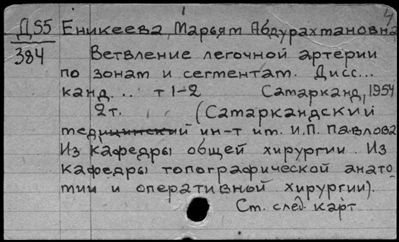 4
Д55 Еникеева, Марьят Абдурахтановна
384 Ветвление легочной артерии
по зонат и сегтентат. Дисс...
канд. .. т 1-2 Сатарканд, 1954
2т. (Сатаркандский
тедицинский ин-т ит. И.П. Павлова
Из кафедры общей хирургии. Из
кафедры топографической анато
тии и оперативной хирургии).
Ст. след. карт